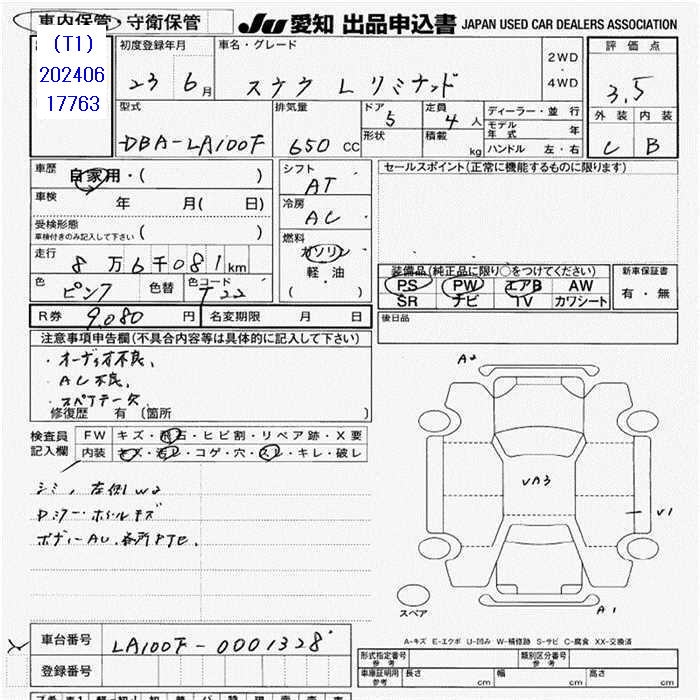 車内保管・守衛保管 JU 愛知 出品申込書 JAPAN USED CAR DEALERS ASSOCIATION
(T1)
202406
17763
初度登録年月 車名・グレード 2WD ・ 4WD 評価点
23 6月 L 3.5
型式 排気量 ドア 定員 ディーラー・並行 外装 内装
DBA-LA100F 650 CC 5 4人 モデル年式 年 C B
形状 積載 kg ハンドル 左・右
車歴 自家用・( ) シフト AT セールスポイント(正常に機能するものに限ります)
車検 年 月( 日) 冷房 AC
受検形態 ( )
車検付きのみ記入して下さい
燃料 ガソリン 軽油 ( ・ )
走行 8万6千081km
装備品(純正品に限り○をつけてください) 新車保証書
PS PW エアB AW 有・無
SR ナビ TV カワシート
色 ピンク 色替 色コード T22
R券 9,080円 名変期限 月 日 後日品
注意事項申告欄(不具合内容等は具体的に記入して下さい)
・オーディオ不良、
・AC不良、
・スペアキー欠
修復歴 有 (箇所 )
検査員記入欄 FW キズ・飛石・ヒビ割・リペア跡・X要
内装 キズ・汚れ・コゲ・穴・スレ・キレ・破レ
シミ、左側W2
Dミラー・ホイルキズ
ボディーAU、各所
A2
UA3
U1
A1
スペア
A-キズ E-エクボ U-凹み W-補修跡 S-サビ C-腐食 XX-交換済
車台番号 LA100F-0001328
登録番号
形式指定番号 参考 類別区分番号 参考
車庫証明用 参考 長さ cm 幅 cm 高さ cm